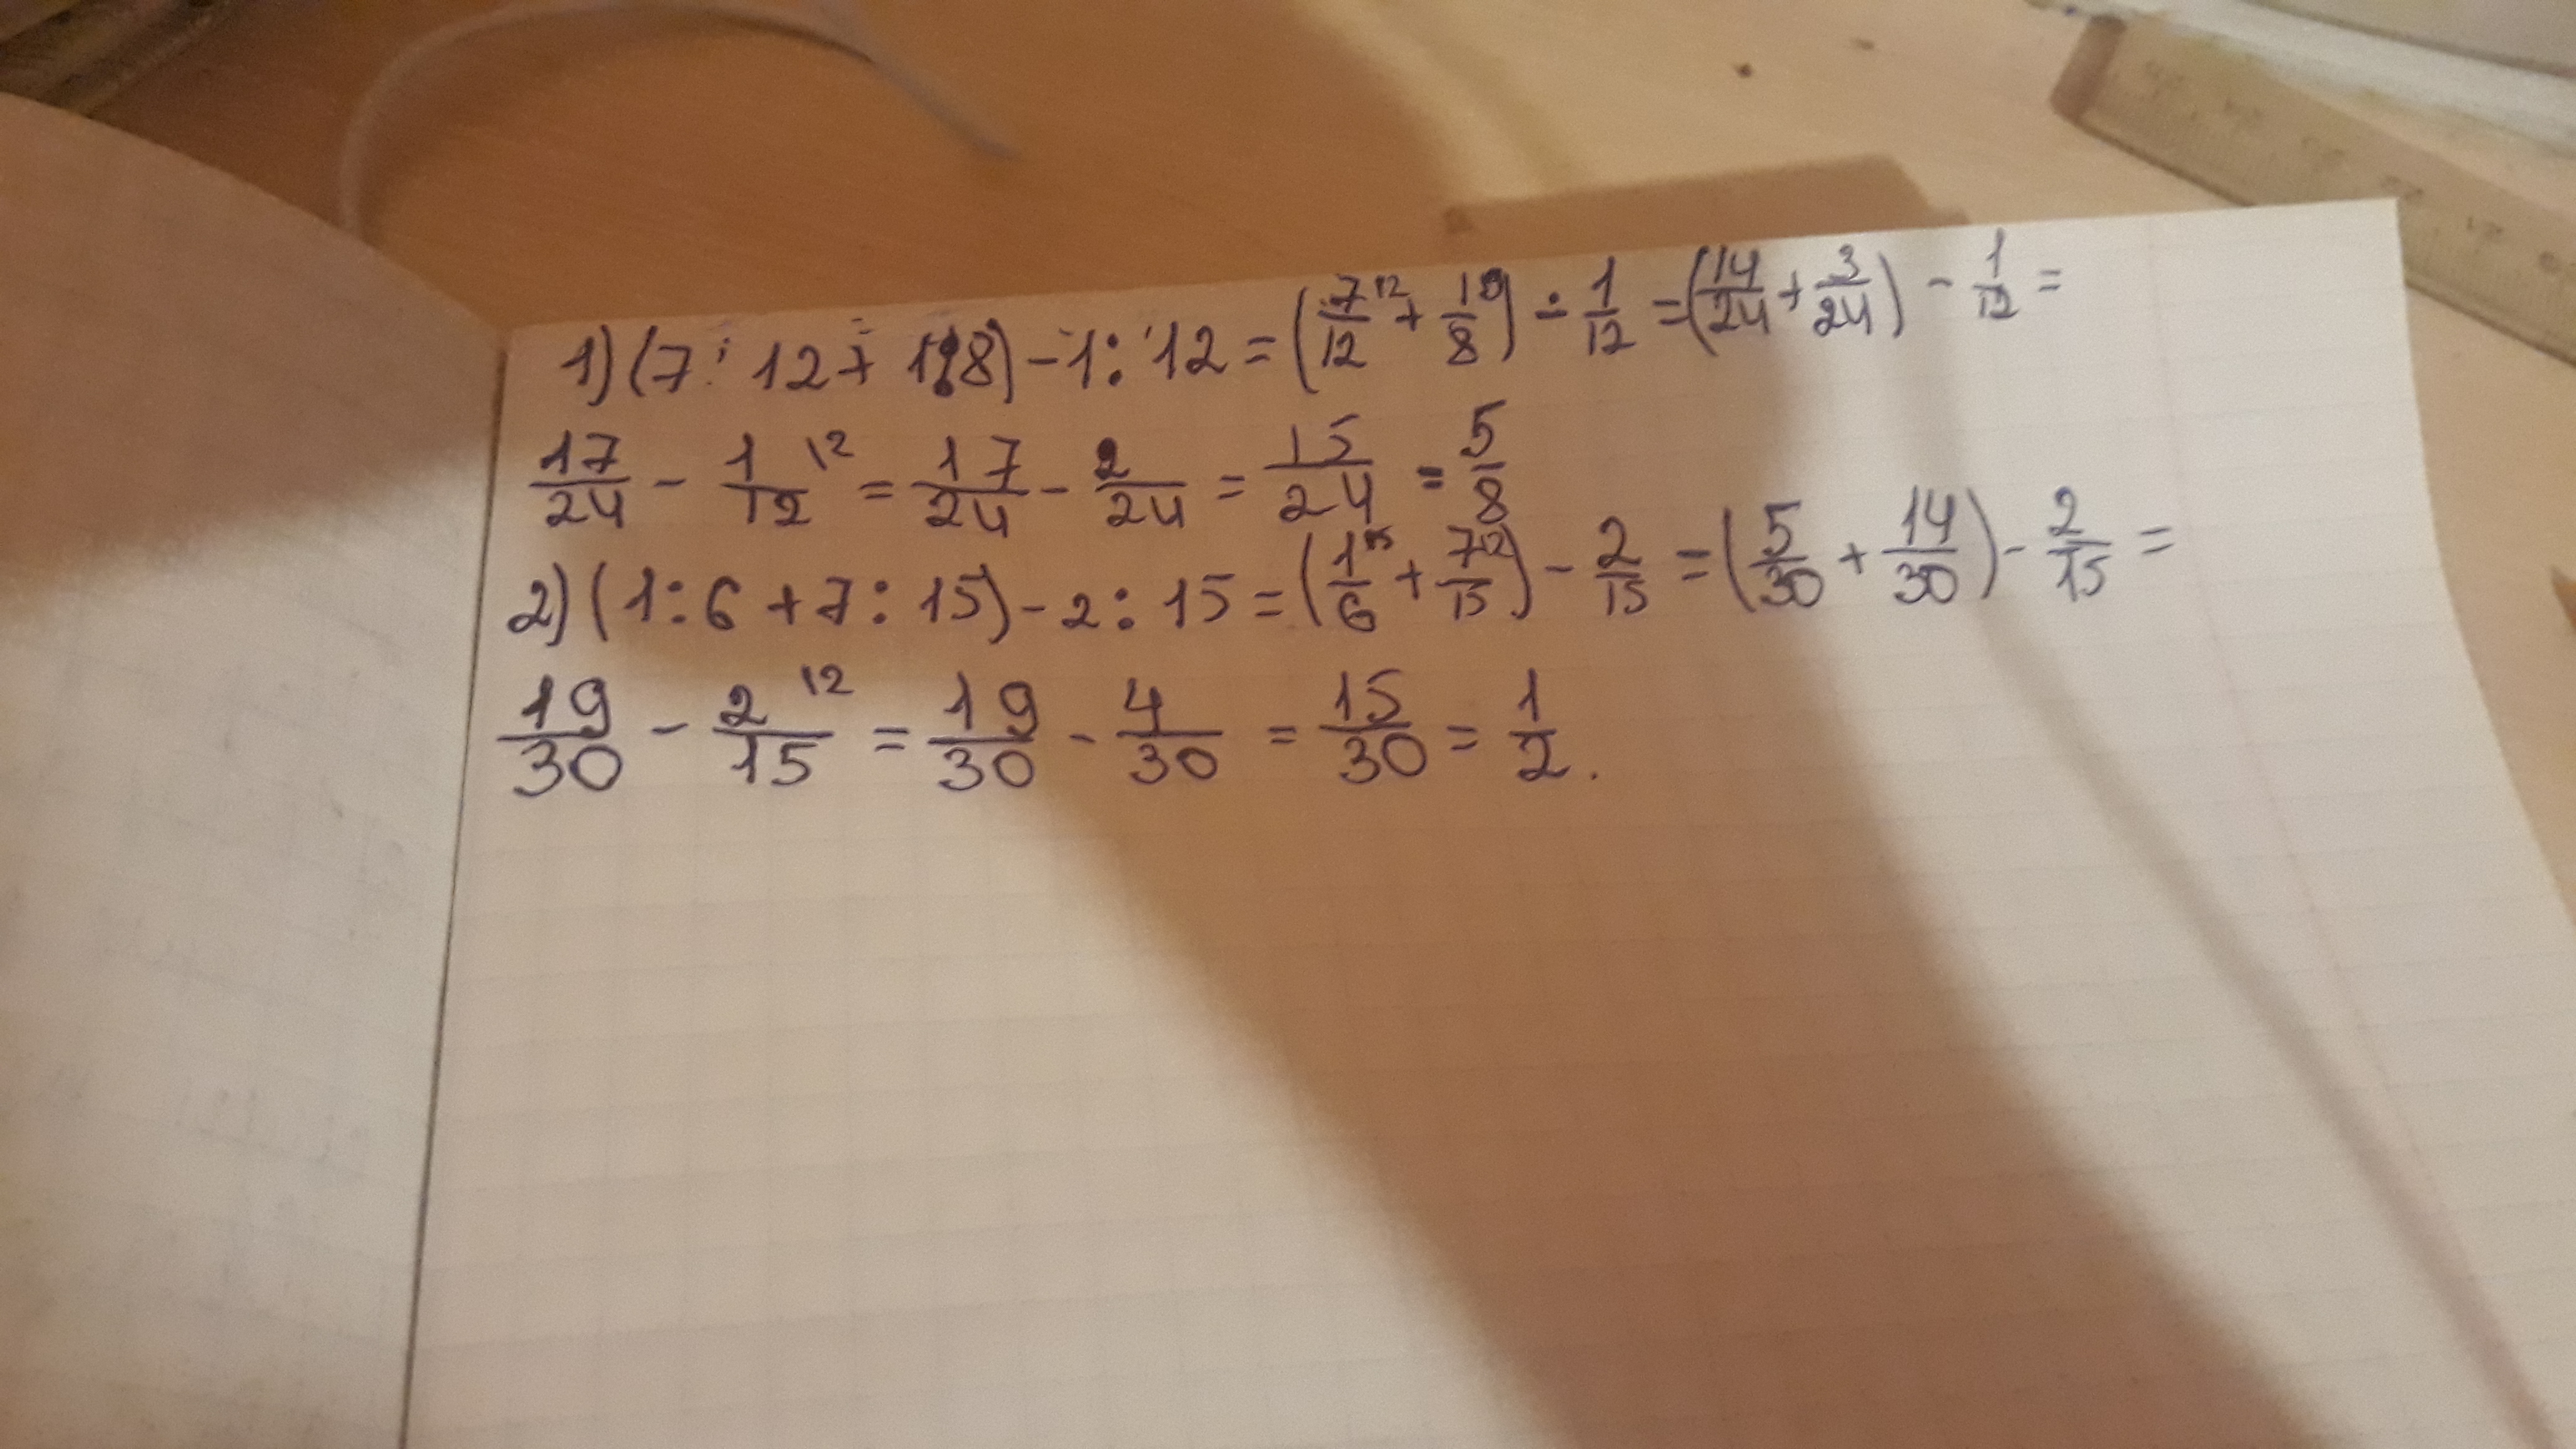 1) (7 : 12 + 1:8) - 1 : 12 = (7/12 + 1/8) - 1/12 = (14/24 + 3/24) - 1/12 =
17/24 - 1/12 \2 = 17/24 - 2/24 = 15/24 = 5/8
2) (1 : 6 + 7 : 15) - 2 : 15 = (1/6 \5 + 7/15 \2) - 2/15 = (5/30 + 14/30) - 2/15 =
19/30 - 2/15 \2 = 19/30 - 4/30 = 15/30 = 1/2.